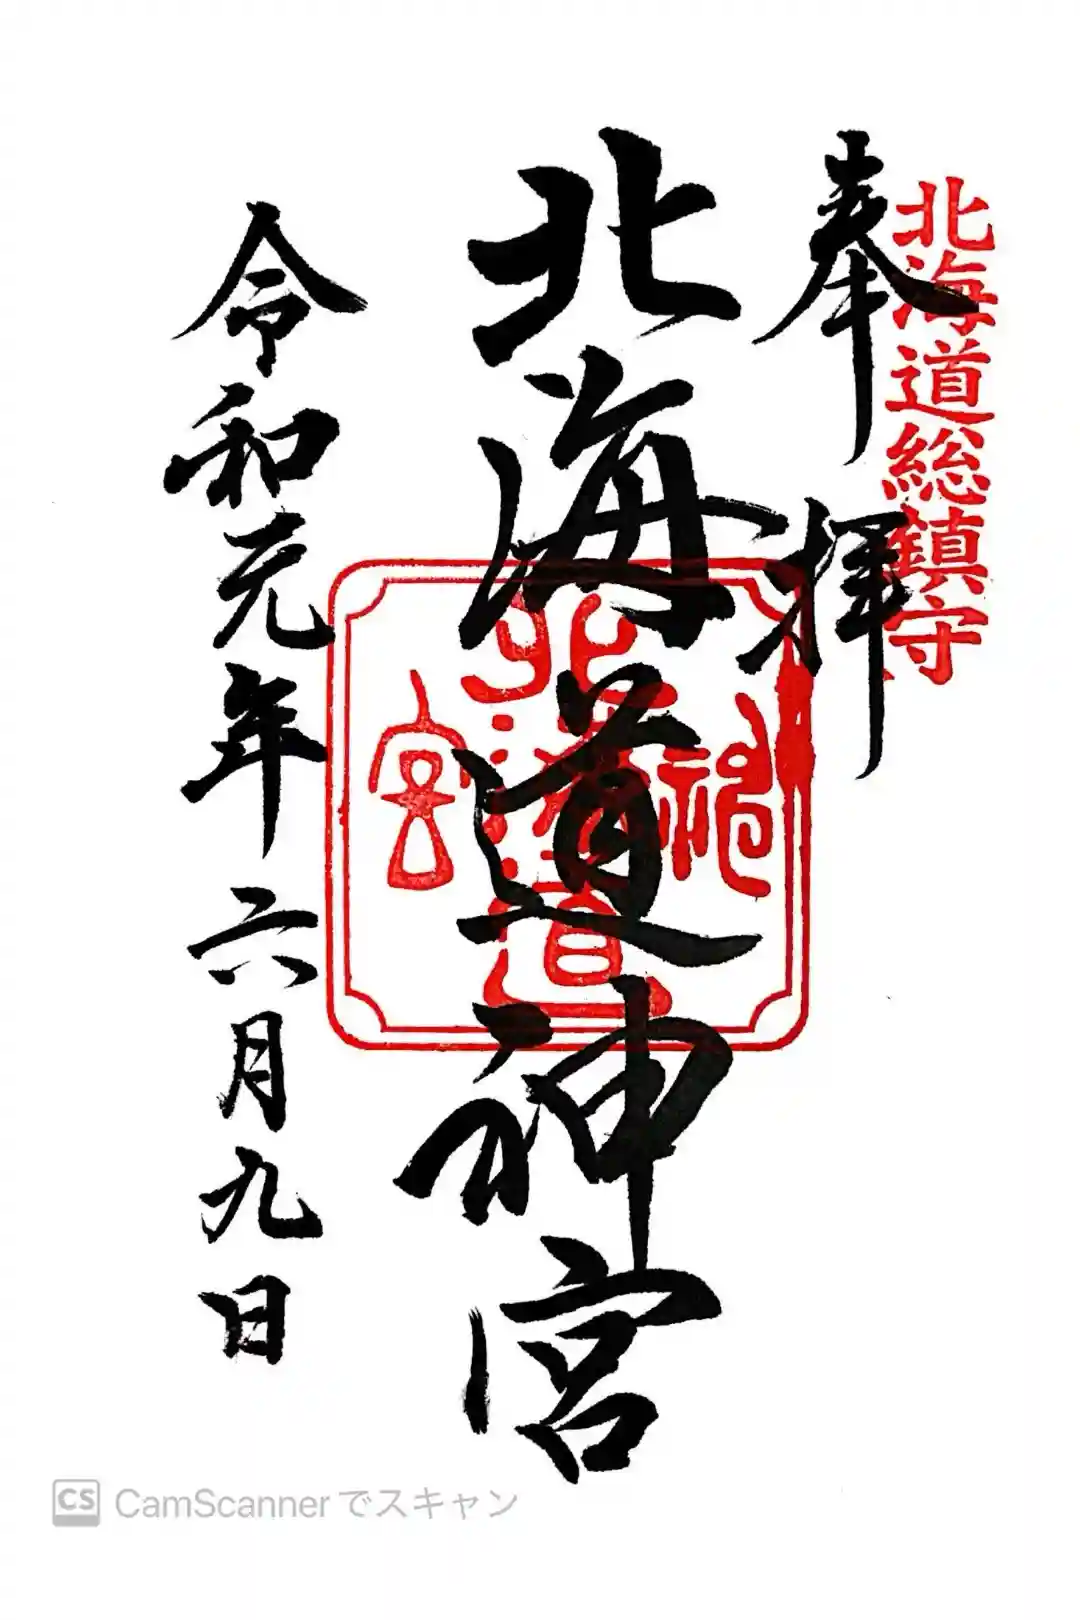 北海道総鎮守
奉拝
北海道神宮
北海道神宮
令和元年六月九日
CS CamScannerでスキャン